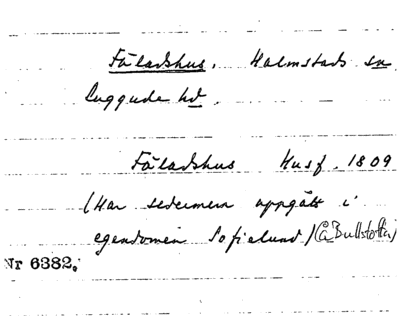 Fäladshus, Halmstads sn
Luggude hd.
Fäladshus Husf. 1809
(Har sedermera uppgått i
egendomen Sofielund) (CÅ Bullstofta)
Nr 6382.